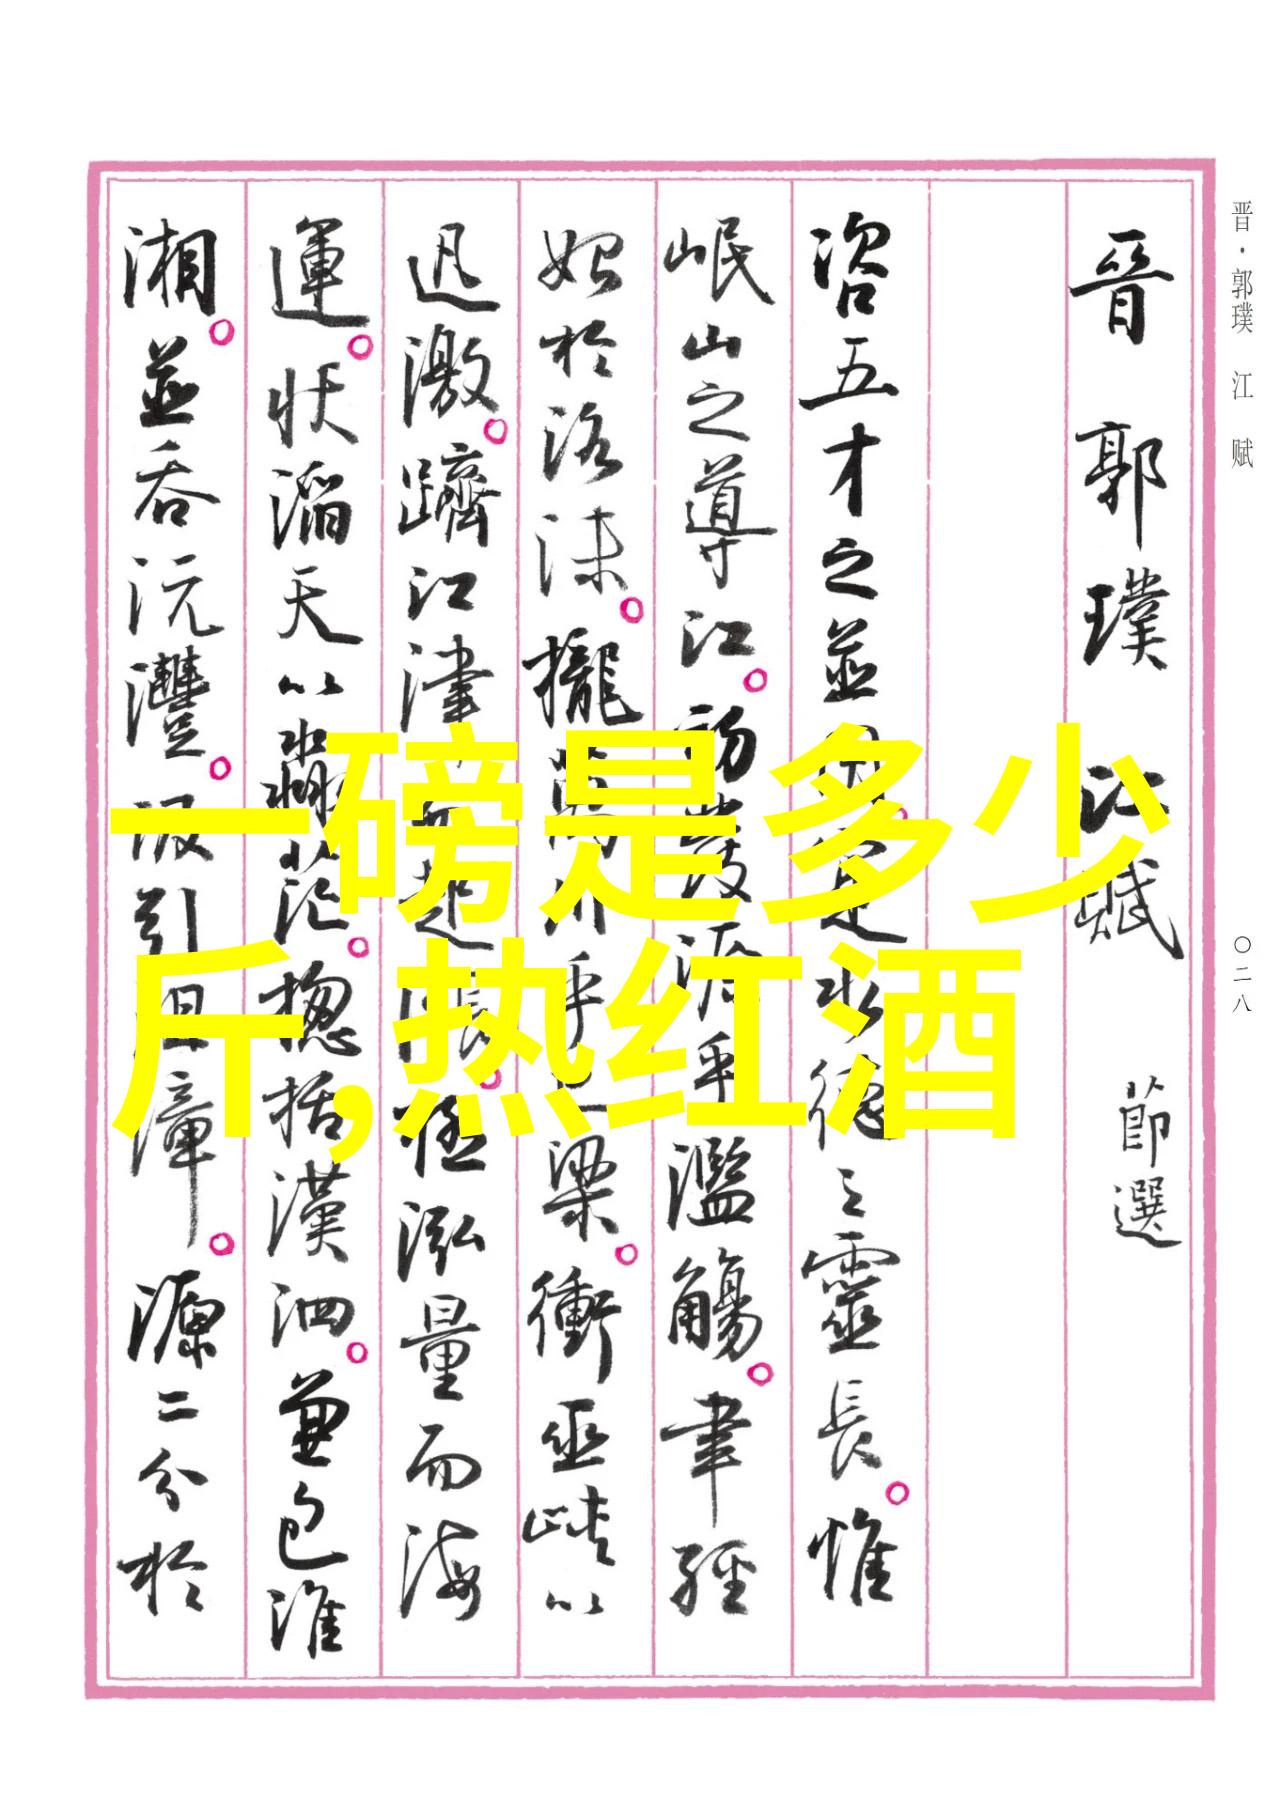 晋·郭璞 江 赋
〇二八
晉郭璞江賦 節選
咨五才之並用 寔水德之靈長 惟
岷山之導江 初發源乎濫觴 聿經
始於洛沬 攏萬川乎巴梁 衝巫峽以
迅激 躋江津而起漲 極泓量而海
運 狀滔天以淼茫 摠括漢泗 兼包淮
湘 並吞沅澧 汲引沮漳 源二分於
一磅是多少
斤,热红酒